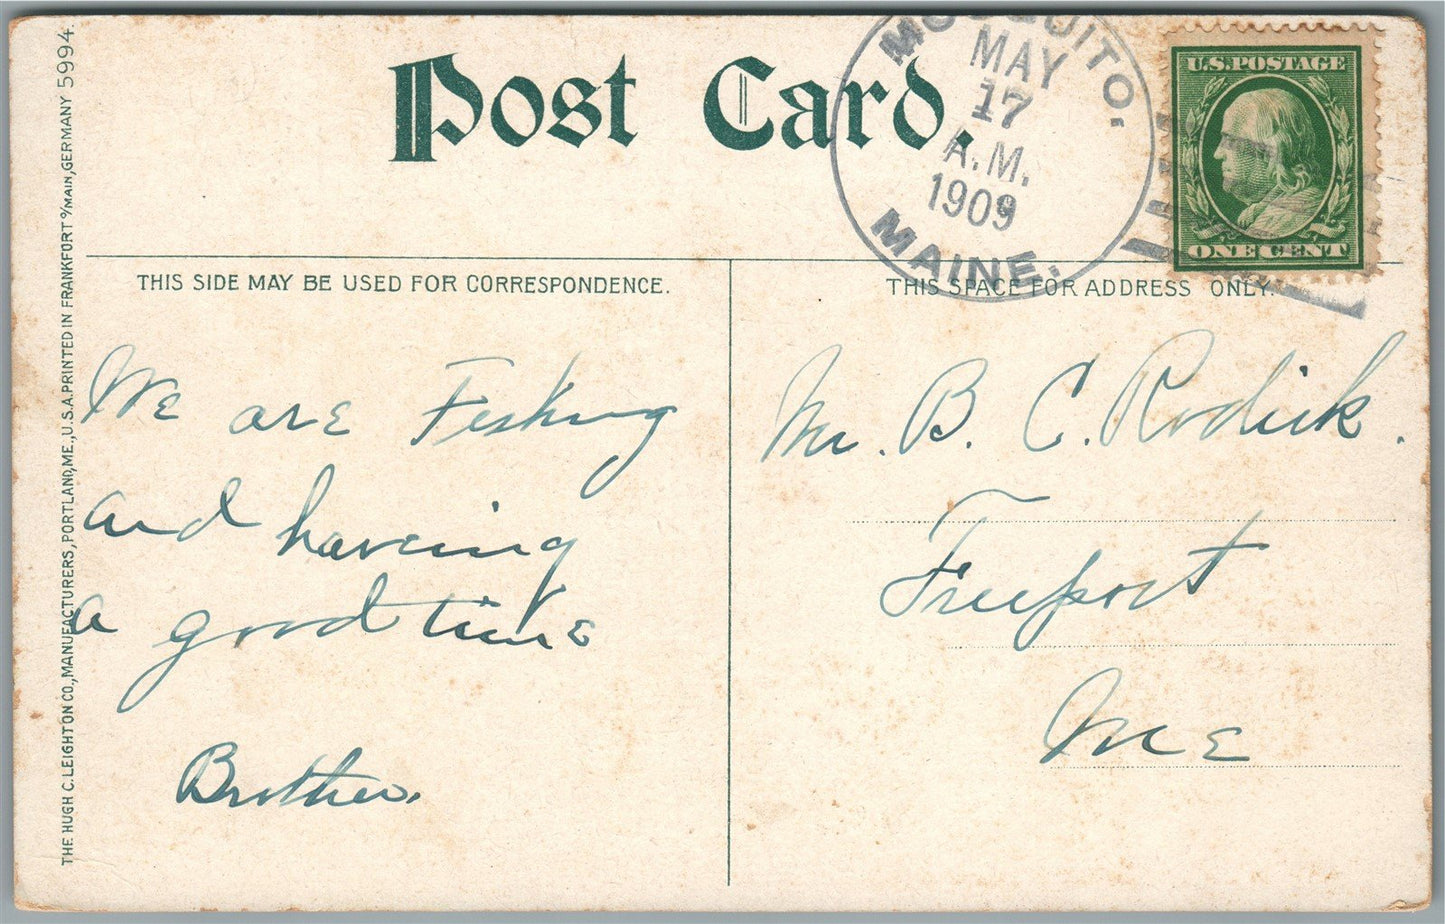 Post Card.
MOSQUITO.
MAY
17
A.M.
1909
MAINE.
U.S. POSTAGE
ONE CENT
THIS SIDE MAY BE USED FOR CORRESPONDENCE.
THIS SPACE FOR ADDRESS ONLY.
We are Fishing
and having
a good time
Brother.
Mr. B. C. Rodick.
Freeport
Me
THE HUGH C. LEIGHTON CO., MANUFACTURERS, PORTLAND, ME., U.S.A. PRINTED IN FRANKFORT o/MAIN, GERMANY 5994.